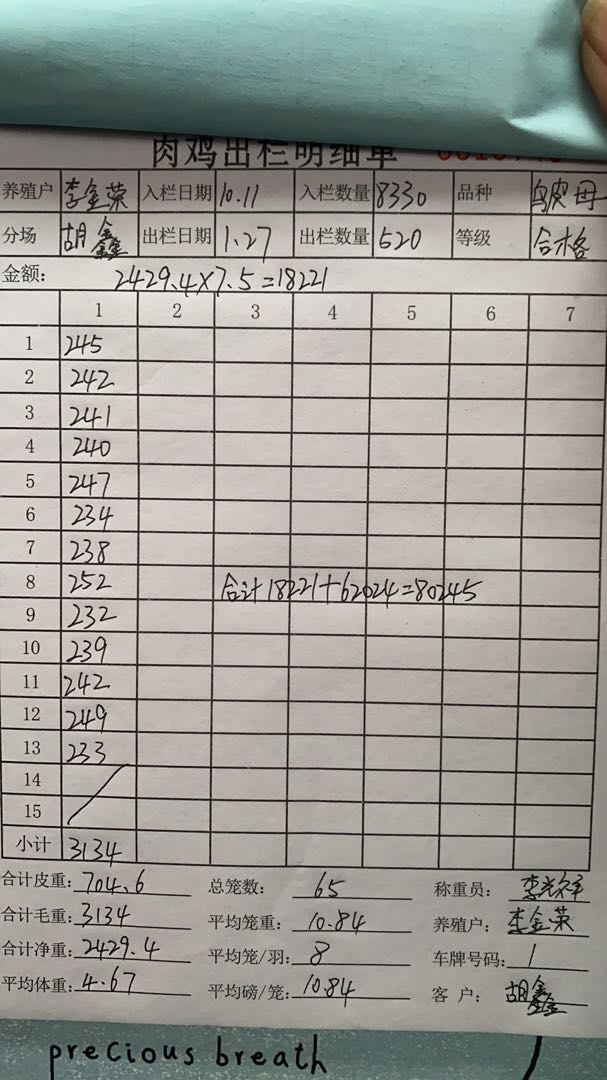 肉鸡出栏明细单
养殖户 李金荣 入栏日期 10.11 入栏数量 8330 品种 乌皮母
分场 胡鑫 出栏日期 1.27 出栏数量 520 等级 合格
金额: 2429.4×7.5=18221
1 2 3 4 5 6 7
1 245
2 242
3 241
4 240
5 247
6 234
7 238
8 252 合计18221+62024=80245
9 232
10 239
11 242
12 249
13 233
14
15
小计 3134
合计皮重: 704.6 总笼数: 65 称重员:
合计毛重: 3134 平均笼重: 10.84 养殖户: 李金荣
合计净重: 2429.4 平均笼/羽: 8 车牌号码: 1
平均体重: 4.67 平均磅/笼: 10.84 客户: 胡鑫
precious breath